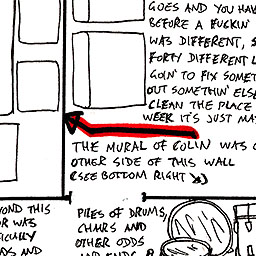 GOES AND YOU HAV
BEFORE A FUCKIN'
WAS DIFFERENT, S
FORTY DIFFERENT L
GOIN' TO FIX SOMET
OUT SOMETHIN' ELSE
CLEAN THE PLACE
WEEK IT'S JUST MA
THE MURAL OF COLIN WAS O
OTHER SIDE OF THIS WALL
(SEE BOTTOM RIGHT
OND THIS
OR WAS
ICALLY
DS AND
PILES OF DRUMS,
CHAIRS AND
OTHER ODDS
AND ENDS